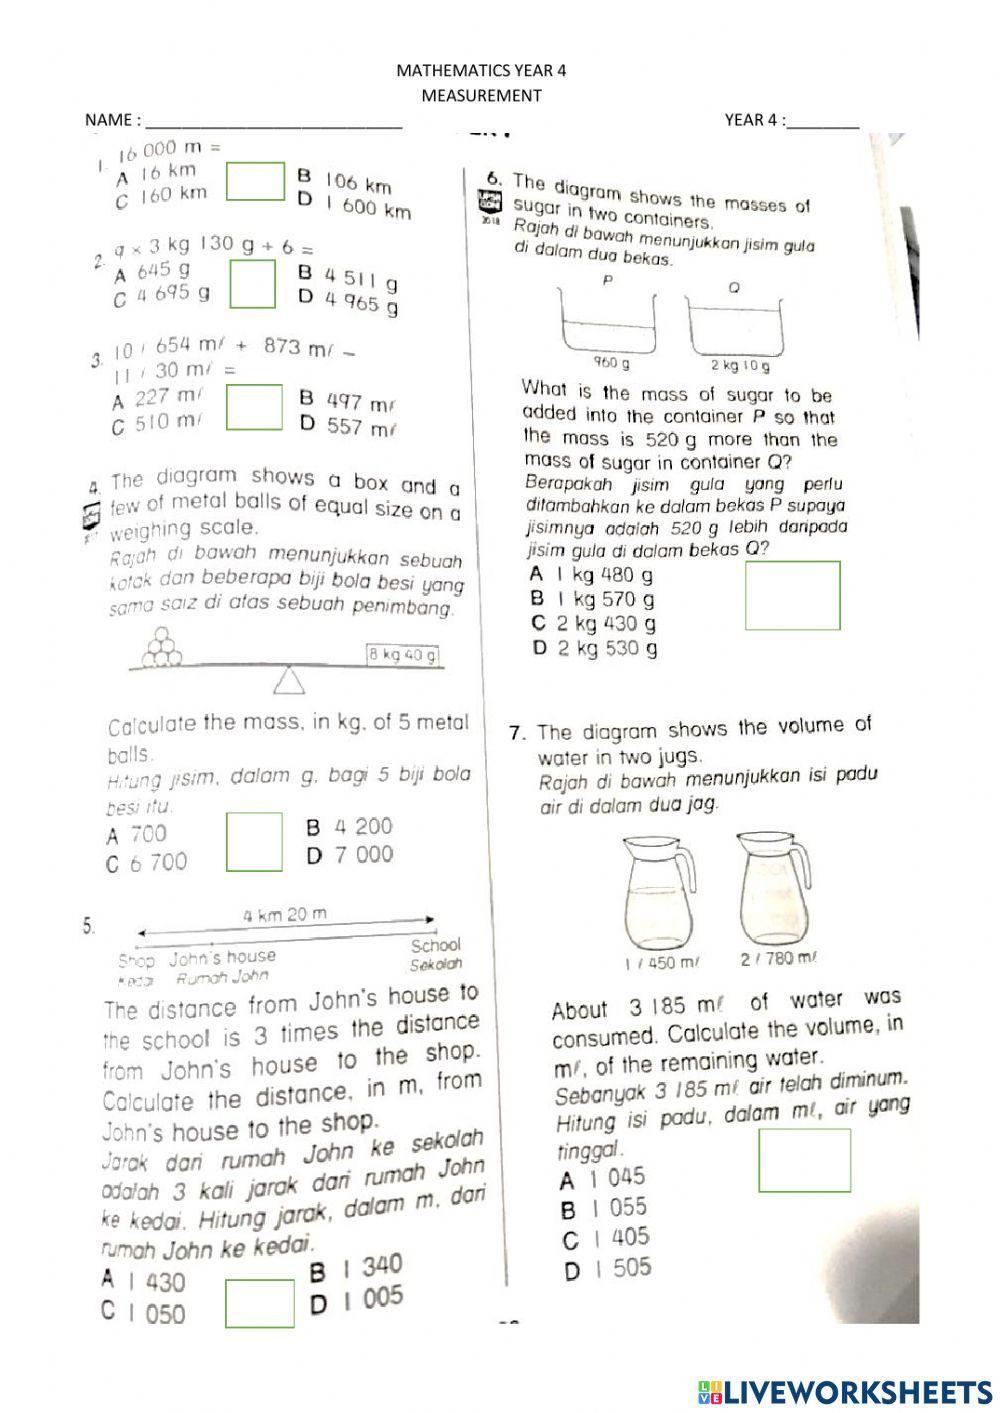 MATHEMATICS YEAR 4
MEASUREMENT
NAME : ____________________________
YEAR 4 :________
1. 16 000 m =
A 16 km
B 106 km
C 160 km
D 1 600 km
2. 9 × 3 kg 130 g ÷ 6 =
A 645 g
B 4 511 g
C 4 695 g
D 4 965 g
3. 10 ℓ 654 mℓ + 873 mℓ −
11 ℓ 30 mℓ =
A 227 mℓ
B 497 mℓ
C 510 mℓ
D 557 mℓ
4. The diagram shows a box and a
few of metal balls of equal size on a
weighing scale.
Rajah di bawah menunjukkan sebuah
kotak dan beberapa biji bola besi yang
sama saiz di atas sebuah penimbang.
8 kg 40 g
Calculate the mass, in kg, of 5 metal
balls.
Hitung jisim, dalam g, bagi 5 biji bola
besi itu.
A 700
B 4 200
C 6 700
D 7 000
5.
4 km 20 m
Shop John's house
School
Kedai Rumah John
Sekolah
The distance from John's house to
the school is 3 times the distance
from John's house to the shop.
Calculate the distance, in m, from
John's house to the shop.
Jarak dari rumah John ke sekolah
adalah 3 kali jarak dari rumah John
ke kedai. Hitung jarak, dalam m, dari
rumah John ke kedai.
A 1 430
B 1 340
C 1 050
D 1 005
6. The diagram shows the masses of
sugar in two containers.
2018
Rajah di bawah menunjukkan jisim gula
di dalam dua bekas.
P
Q
960 g
2 kg 10 g
What is the mass of sugar to be
added into the container P so that
the mass is 520 g more than the
mass of sugar in container Q?
Berapakah jisim gula yang perlu
ditambahkan ke dalam bekas P supaya
jisimnya adalah 520 g lebih daripada
jisim gula di dalam bekas Q?
A 1 kg 480 g
B 1 kg 570 g
C 2 kg 430 g
D 2 kg 530 g
7. The diagram shows the volume of
water in two jugs.
Rajah di bawah menunjukkan isi padu
air di dalam dua jag.
1 ℓ 450 mℓ
2 ℓ 780 mℓ
About 3 185 mℓ of water was
consumed. Calculate the volume, in
mℓ, of the remaining water.
Sebanyak 3 185 mℓ air telah diminum.
Hitung isi padu, dalam mℓ, air yang
tinggal.
A 1 045
B 1 055
C 1 405
D 1 505
LIVE LIVEWORKSHEETS